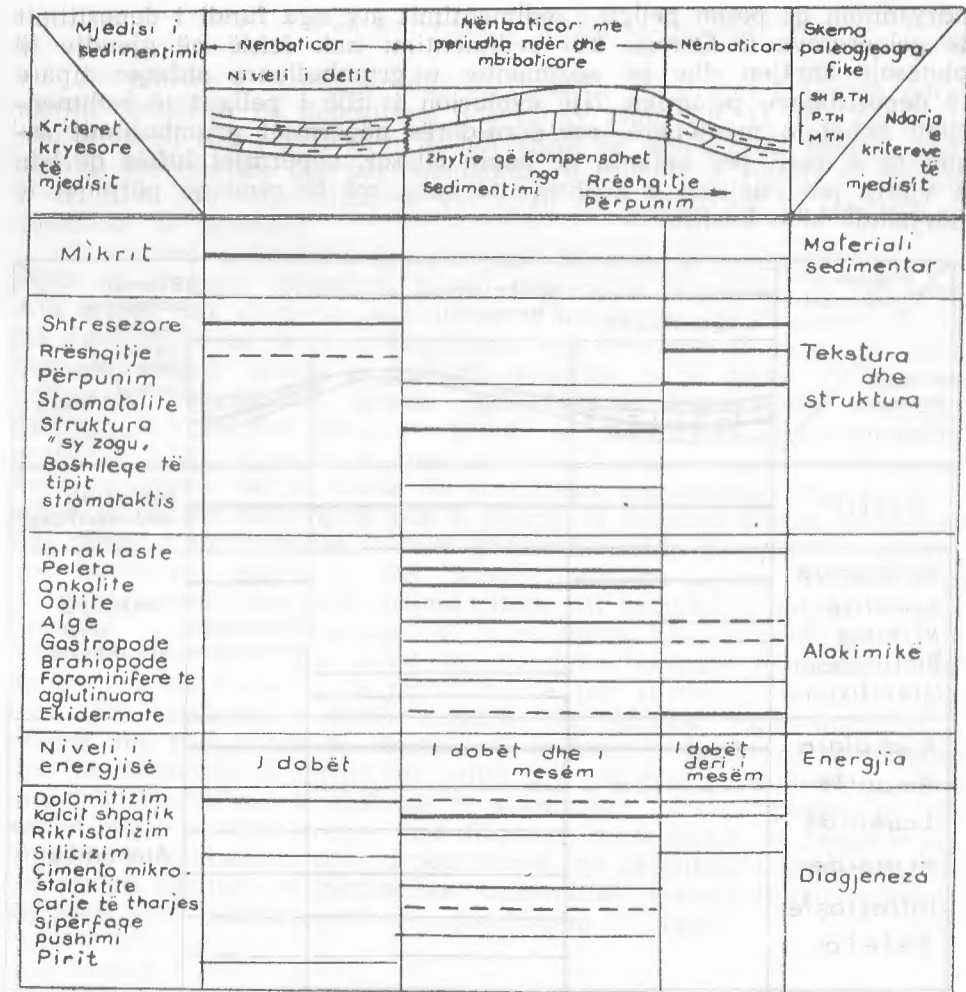 Mjedisi
Sedimentimit
Kriteret
kryesore
të
mjedisit
Nënbaticor
Niveli i detit
Nënbaticor me
periudha ndër dhe
mbibaticore
zhytje që kompensohet
nga
sedimentimi
Rrëshqitje
Përpunim
Nënbaticor
Skema
paleogjeogra-
fike
SH P.TH
P.TH
Ndarja
e
kritereve
të
mjedisit
Mikrit
Materiali
sedimentar
Shtresëzore
Rrëshqitje
Përpunim
Stromatolite
Struktura
"sy zogu,
Boshllëqe të
tipit
stromataktis
Tekstura
dhe
struktura
Intraklaste
Peleta
Onkolite
Oolite
Alge
Gastropode
Brahiopode
Forominifere të
aglutinuara
Ekidermate
Alokimikë
Niveli i
energjisë
I dobët
I dobët dhe i
mesëm
I dobët
deri i
mesëm
Energjia
Dolomitizim
Kalcit shpatik
Rikristalizim
Silicizim
Çimento mikro-
stalaktite
Çarje të tharjes
Sipërfaqe
pushimi
Pirit
Diagjeneza